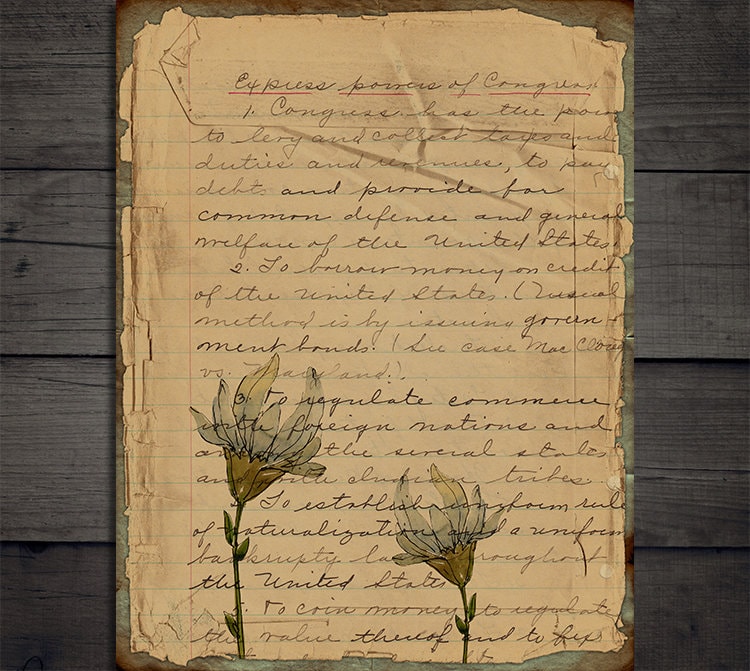 Express powers of Congress
1. Congress has the pow
to levy and collect taxes and
duties and revenues, to pay
debts and provide for
common defense and general
welfare of the United States.
2. To borrow money on credit
of the United States. (Unusual
method is by issuing govern
ment bonds. (See case Mac
vs. Maryland.).
3. To regulate commerce
with foreign nations and
the several states
and with Indian tribes.
To establish uniform rule
of naturalization and a uniform
bankruptcy throughout
the United States
5. To coin money to regulate
the value thereof and to fix